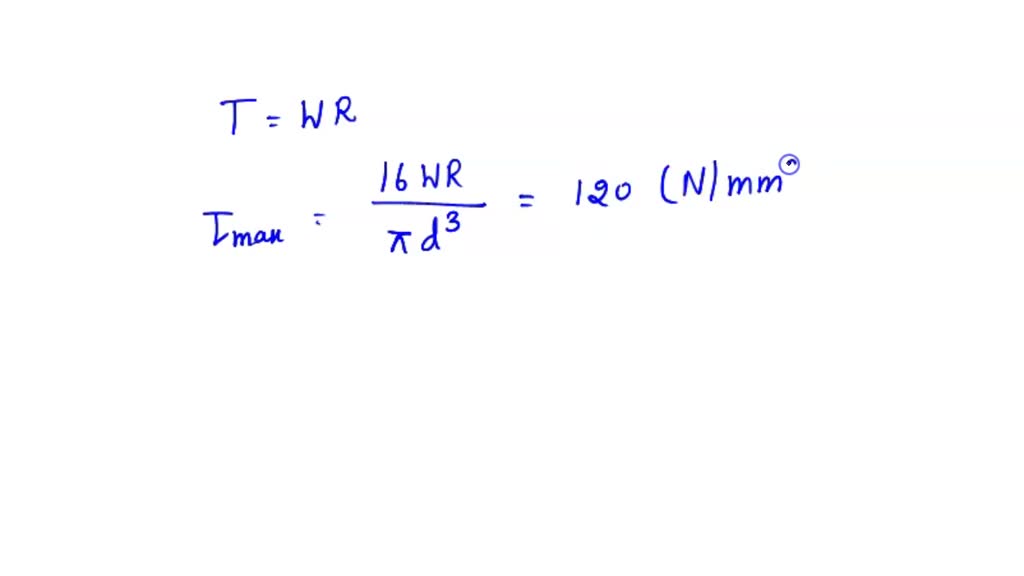 T = WR
τmax = 16 WR / π d³ = 120 (N/mm